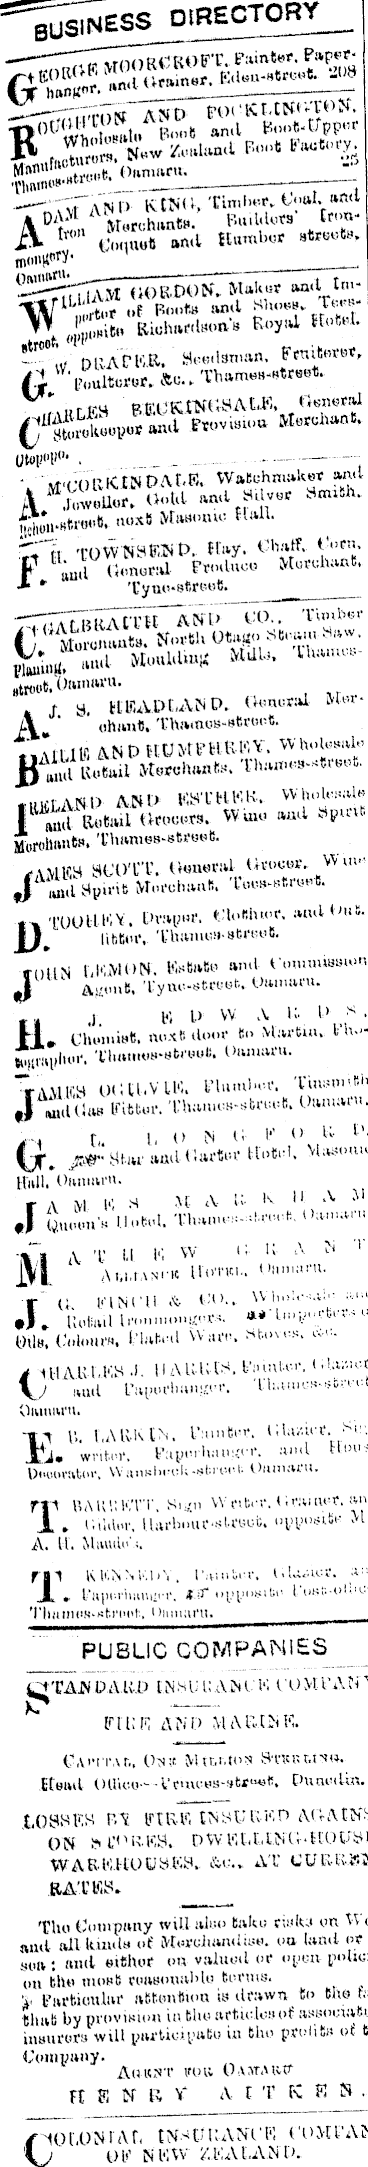 BUSINESS DIRECTORY
GEORGE MOORCROFT, Painter, Paper-
hanger, and Grainer, Eden-street. 208
ROUGHTON AND POCKLINGTON,
Wholesale Boot and Boot-Upper
Manufacturers, New Zealand Boot Factory,
Thames-street, Oamaru. 25
ADAM AND KING, Timber, Coal, and
Iron Merchants. Builders' Iron-
mongery. Coquet and Humber streets,
Oamaru.
WILLIAM GORDON, Maker and Im-
porter of Boots and Shoes, Tees-
street, opposite Richardson's Royal Hotel.
G. W. DRAPER, Seedsman, Fruiterer,
Poulterer, &c., Thames-street.
CHARLES BECKINGSALE, General
Storekeeper and Provision Merchant,
Otepopo.
A. M'CORKINDALE, Watchmaker and
Jeweller, Gold and Silver Smith,
Itchen-street, next Masonic Hall.
F. H. TOWNSEND, Hay, Chaff, Corn,
and General Produce Merchant,
Tyne-street.
C. GALBRAITH AND CO., Timber
Merchants, North Otago Steam Saw,
Planing, and Moulding Mills, Thames-
street, Oamaru.
A. J. S. HEADLAND, General Mer-
chant, Thames-street.
BAILIE AND HUMPHREY, Wholesale
and Retail Merchants, Thames-street.
IRELAND AND ESTHER, Wholesale
and Retail Grocers, Wine and Spirit
Merchants, Thames-street.
JAMES SCOTT, General Grocer, Wine
and Spirit Merchant, Tees-street.
D. TOOHEY, Draper, Clothier, and Out-
fitter, Thames-street.
JOHN LEMON, Estate and Commission
Agent, Tyne-street, Oamaru.
H. J. EDWARDS,
Chemist, next door to Martin, Pho-
tographer, Thames-street, Oamaru.
JAMES OGILVIE, Plumber, Tinsmith
and Gas Fitter, Thames-street, Oamaru.
G. L. LONGFORD,
Star and Garter Hotel, Masonic
Hall, Oamaru.
JAMES MARKHAM
Queen's Hotel, Thames-street, Oamaru
MATHEW GRANT
ALLIANCE HOTEL, Oamaru.
J. G. FINCH & CO., Wholesale and
Retail Ironmongers. Importers o
Oils, Colours, Plated Ware, Stoves, &c.
CHARLES J. HARRIS, Painter, Glazier
and Paperhanger, Thames-street
Oamaru.
E. B. LARKIN, Painter, Glazier, Sig
writer, Paperhanger, and Hous
Decorator, Wansbeck-street Oamaru.
T. BARRETT, Sign Writer, Grainer, an
Gilder, Harbour-street, opposite M
A. H. Maude's.
T. KENNEDY, Painter, Glazier, an
Paperhanger, opposite Post-office
Thames-street, Oamaru.
PUBLIC COMPANIES
STANDARD INSURANCE COMPANY
FIRE AND MARINE.
CAPITAL, ONE MILLION STERLING.
Head Office--Princes-street, Dunedin.
LOSSES BY FIRE INSURED AGAINS
ON STORES, DWELLING-HOUSE
WAREHOUSES, &c., AT CURREN
RATES.
The Company will also take risks on Wo
and all kinds of Merchandise, on land or
sea; and either on valued or open polic
on the most reasonable terms.
Particular attention is drawn to the fa
that by provision in the articles of associati
insurers will participate in the profits of t
Company.
AGENT FOR OAMARU
HENRY AITKEN.
COLONIAL INSURANCE COMPAN
OF NEW ZEALAND.